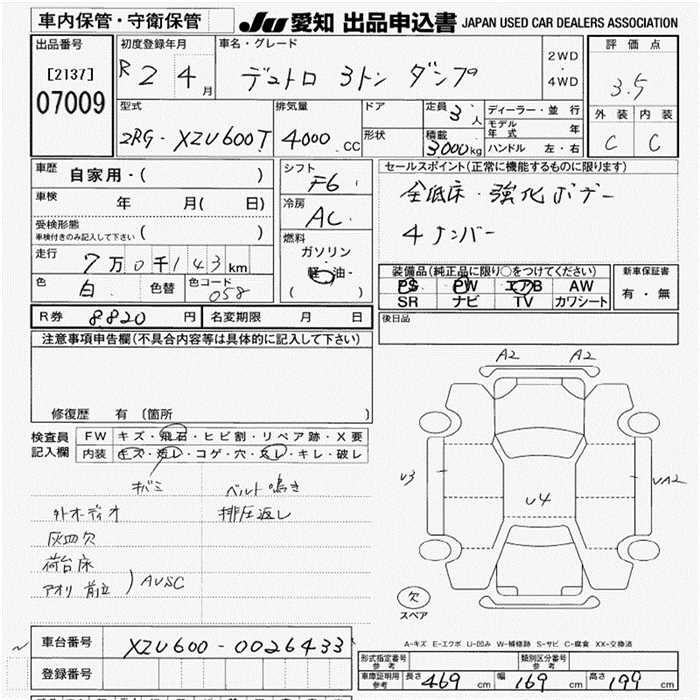 車内保管・守衛保管
JU 愛知 出品申込書 JAPAN USED CAR DEALERS ASSOCIATION
出品番号
[2137]
07009
初度登録年月
R 2 4 月
車名・グレード
デュトロ 3トン ダンプ
2WD
・
4WD
評価点
3.5
外装 内装
C C
型式
2RG-XZU600T
排気量
4000 CC
ドア
形状
定員 3 人
積載 3000kg
ディーラー・並行
モデル年式 年
ハンドル 左・右
車歴
自家用・( )
車検
年 月( 日)
受検形態
車検付きのみ記入して下さい ( )
走行
7万0千143km
色 白 色替 色コード 058
シフト
F6
冷房
AC
燃料
ガソリン
軽油・
( )
セールスポイント(正常に機能するものに限ります)
全低床・強化ボデー
4ナンバー
装備品(純正品に限り○をつけてください)
PS PW エアB AW
SR ナビ TV カワシート
新車保証書
有・無
R券 8820 円 名変期限 月 日
後日品
注意事項申告欄(不具合内容等は具体的に記入して下さい)
修復歴 有 〔箇所 〕
検査員
記入欄
FW キズ・飛石・ヒビ割・リペア跡・X要
内装 キズ・汚レ・コゲ・穴・スレ・キレ・破レ
キバミ ベルト鳴き
外オーディオ 排圧返し
灰皿欠
荷台床
アオリ 前立 ) AUSC
A2 A2
U3
U4
UA2
欠
スペア
A-キズ E-エクボ U-凹み W-補修跡 S-サビ C-腐食 XX-交換済
車台番号 XZU600-0026433
登録番号
形式指定番号
参考
類別区分番号
参考
車庫証明用
参考
長さ 469 cm 幅 169 cm 高さ 199 cm